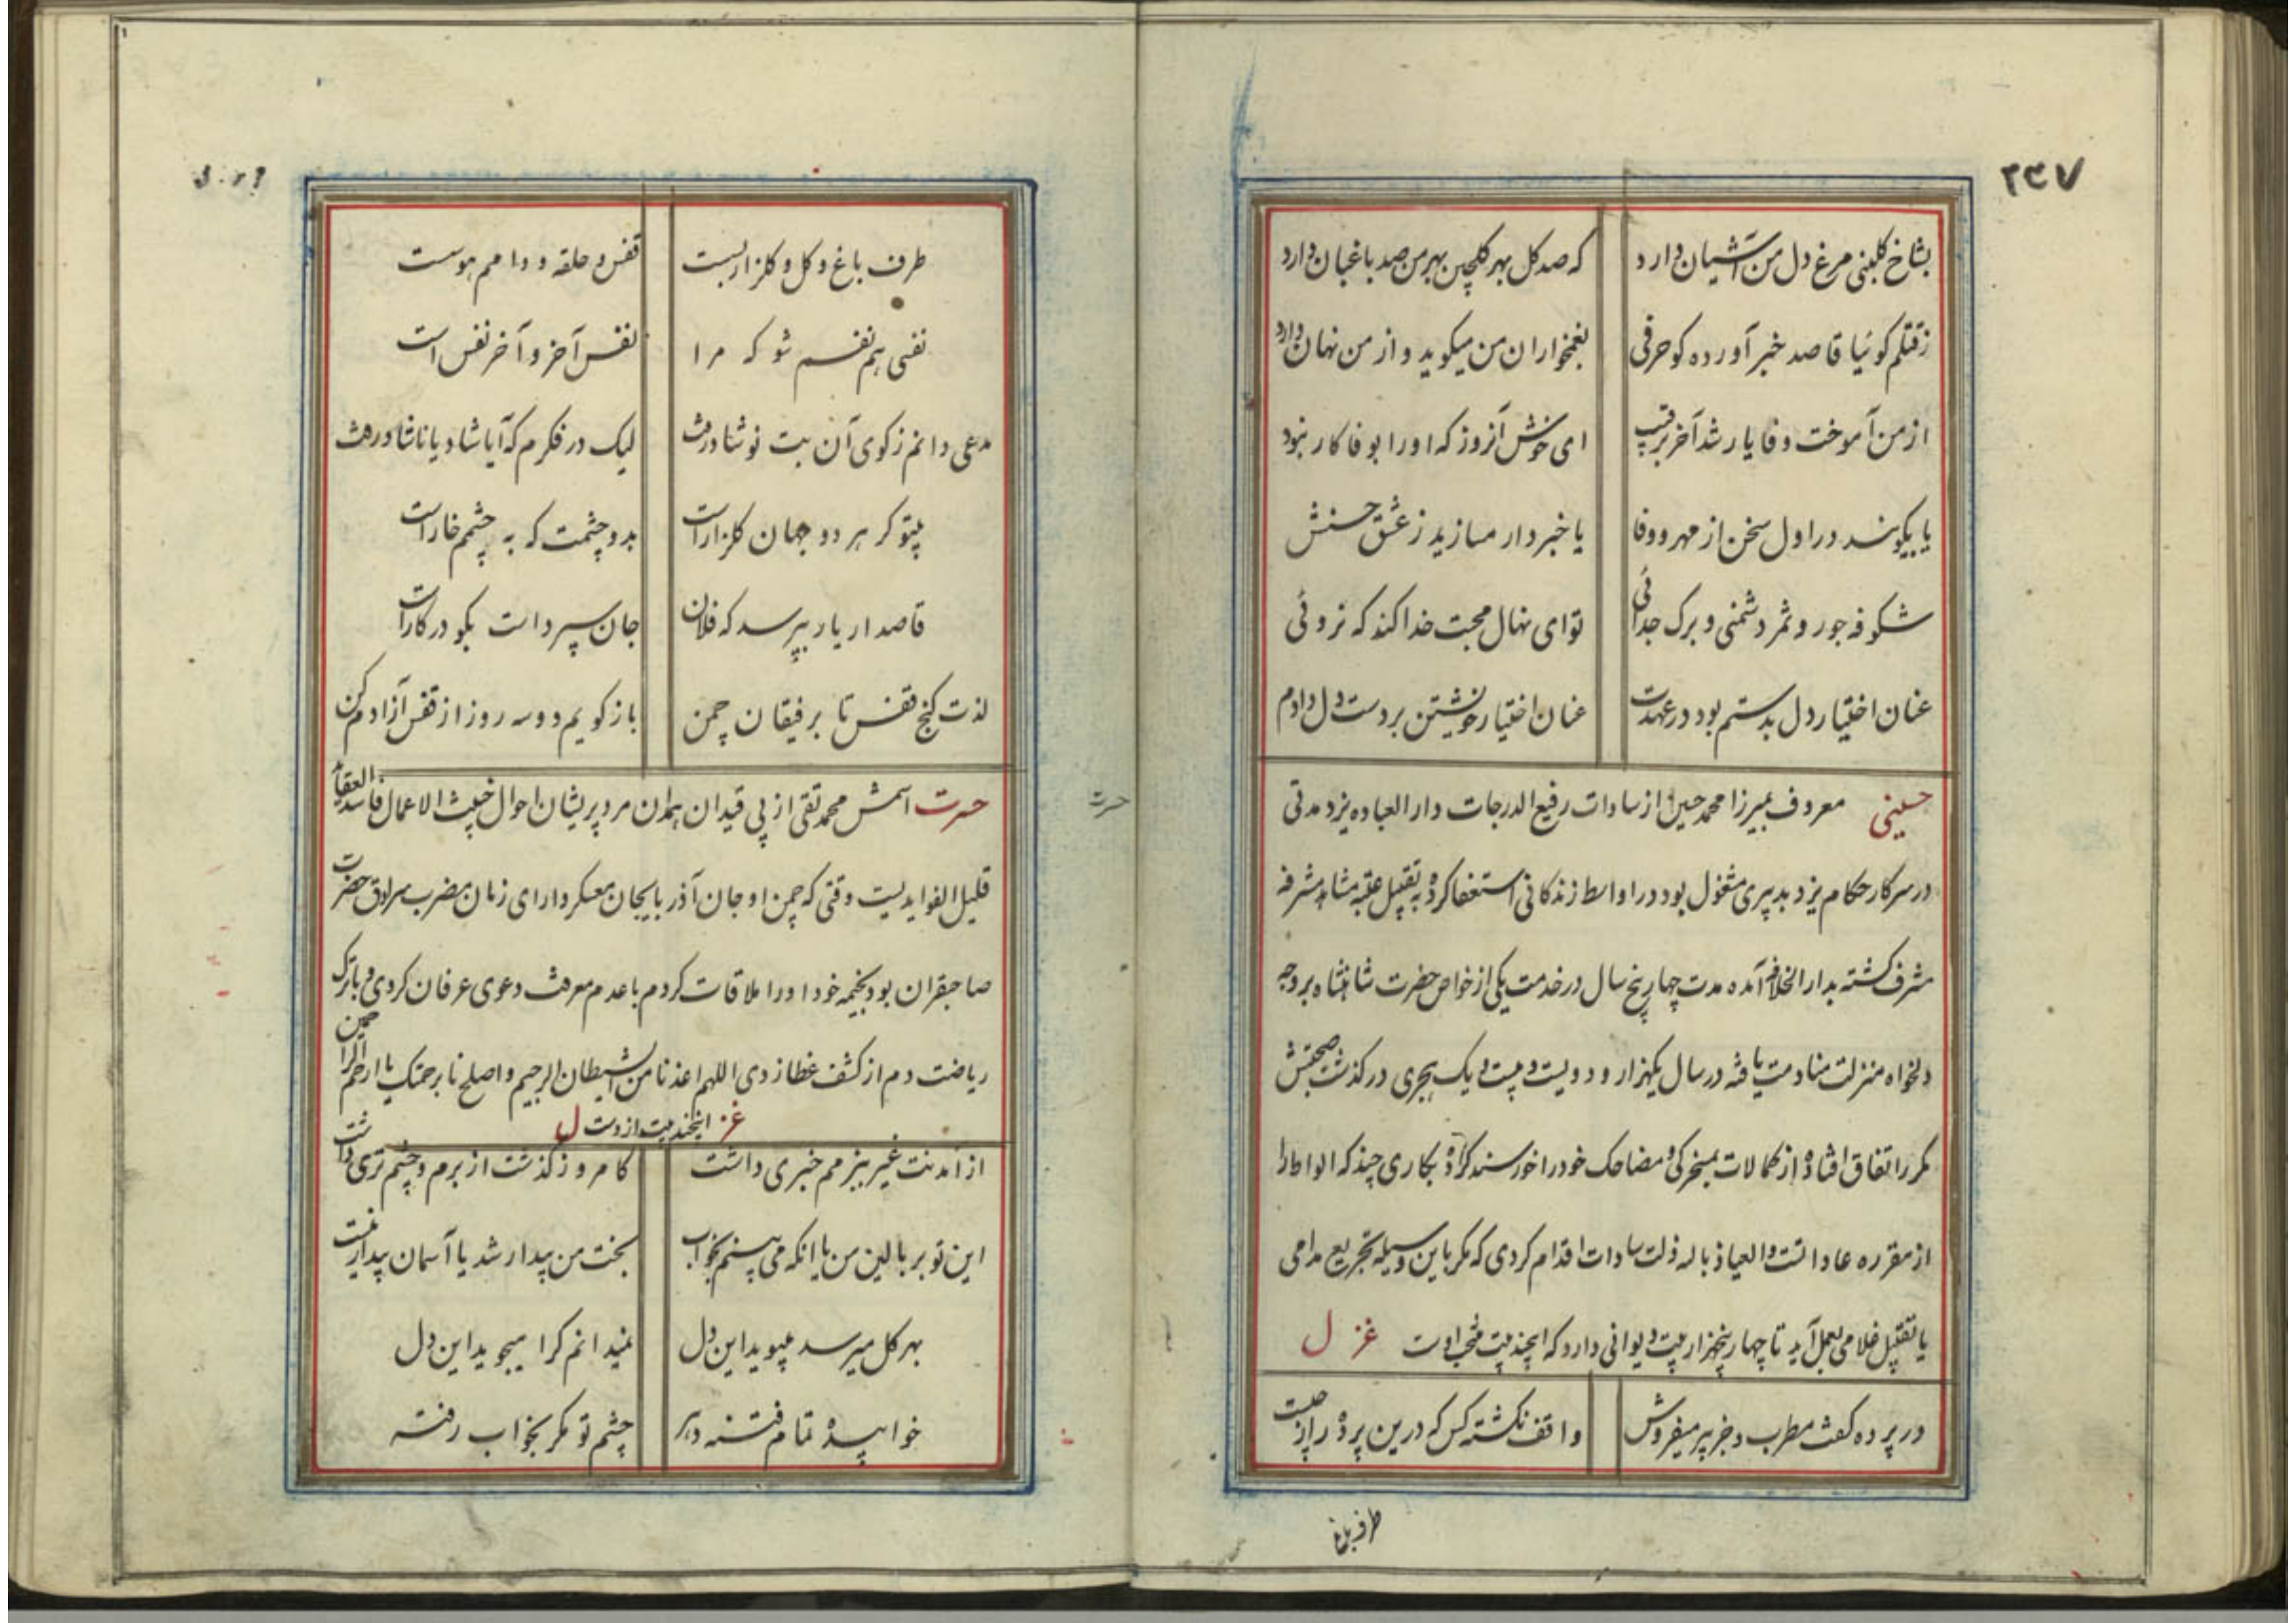 ۲۳۷
بشاخ کلبنی مرغ دل من آشیان دارد که صد کل بهر کلچین بهر من صد باغبان دارد
ز قتلم کوئیا قاصد خبر آورده کو حرفی بغمخواران من میکوید و از من نهان دارد
از من آموخت وفا یار شد آخر برقیب ای خوش آنروز که او را بوفا کار نبود
یا بیکوئید در اول سخن از مهر و وفا یا خبردار مسازید ز عشق حسنش
شکوفه جور و ثمر دشمنی و برک جدائی تو ای نهال محبت خدا کند که نروئی
عنان اختیار دل بدستم بود در عهدت عنان اختیار خویشتن بر دست دل دادم
حسینی معروف بمیرزا محمد حسین از سادات رفیع الدرجات دار العباده یزد مدتی
در سرکار حکام یزد بدبیری مشغول بود در اواسط زندکانی استعفا کرده به تقبیل عتبه مشاهد مشرفه
مشرف کشته بدار الخلافه آمده مدت چهار پنج سال در خدمت یکی از خواص حضرت شاهنشاه بر وجه
دلخواه منزلت منادمت یافته در سال یکهزار و دویست و بیست و یک هجری در کذشت صحبتش
مکرر اتفاق افتاده از کمالات بمسخرکی و مضاحک خود را خورسند کرده بکاری چند که الواط را
از مقرره عادات است و العیاذ بالله ذلت سادات اقدام کردی که مکر باین وسیله تجریع مدامی
یا تقبیل غلامی بعمل آید تا چهار پنجهزار بیت دیوانی دارد که اینچند بیت منتخب اوست غزل
در پرده کفت مطرب و جز پیر میفروش واقف نکشته کس که درین پرده راز چیست
طرف باغ
طرف باغ و کل و کلزار بست قفس و حلقه و دامم هوست
نفسی هم نفسم شو که مرا نفس آخر و آخر نفس است
مدعی دانم ز کوی آن بت نوشاد رفت لیک در فکرم که آیا شاد یا ناشاد رفت
بیتو کر هر دو جهان کلزار است بدو چشمت که به چشمم خار است
قاصد ار یار بپرسد که فلان جان سپرد است بکو در کار است
لذت کنج قفس تا برفیقان چمن باز کویم دو سه روز از قفس آزادم کن
حسرت اسمش محمد تقی از بی قیدان همدان مرد پریشان احوال خبیث الاعمال فاسد العقاید
قلیل الفوایدیست وقتی که چمن اوجان آذربایجان معسکر دارای زمان مضرب سرادق حضرت
صاحبقران بود بخیمه خود او را ملاقات کردم با عدم معرفت دعوی عرفان کردی و با ترک
ریاضت دم از کشف غطا زدی اللهم اعذنا من الشیطان الرجیم و اصلحنا برحمتک یا ارحم الراحمین
حسرت
غزل اینچند بیت ازوست
از آمدنت غیر ببزمم خبری داشت کامروز کذشت از برم و چشم تری داشت
این تو بر بالین من یا انکه می بینم بخواب بخت من بیدار شد یا آسمان بیدار نیست
بهر کل میرسد میبوید این دل نمیدانم کرا میجوید این دل
خوابیده تمام فتنه دهر چشم تو مکر بخواب رفته